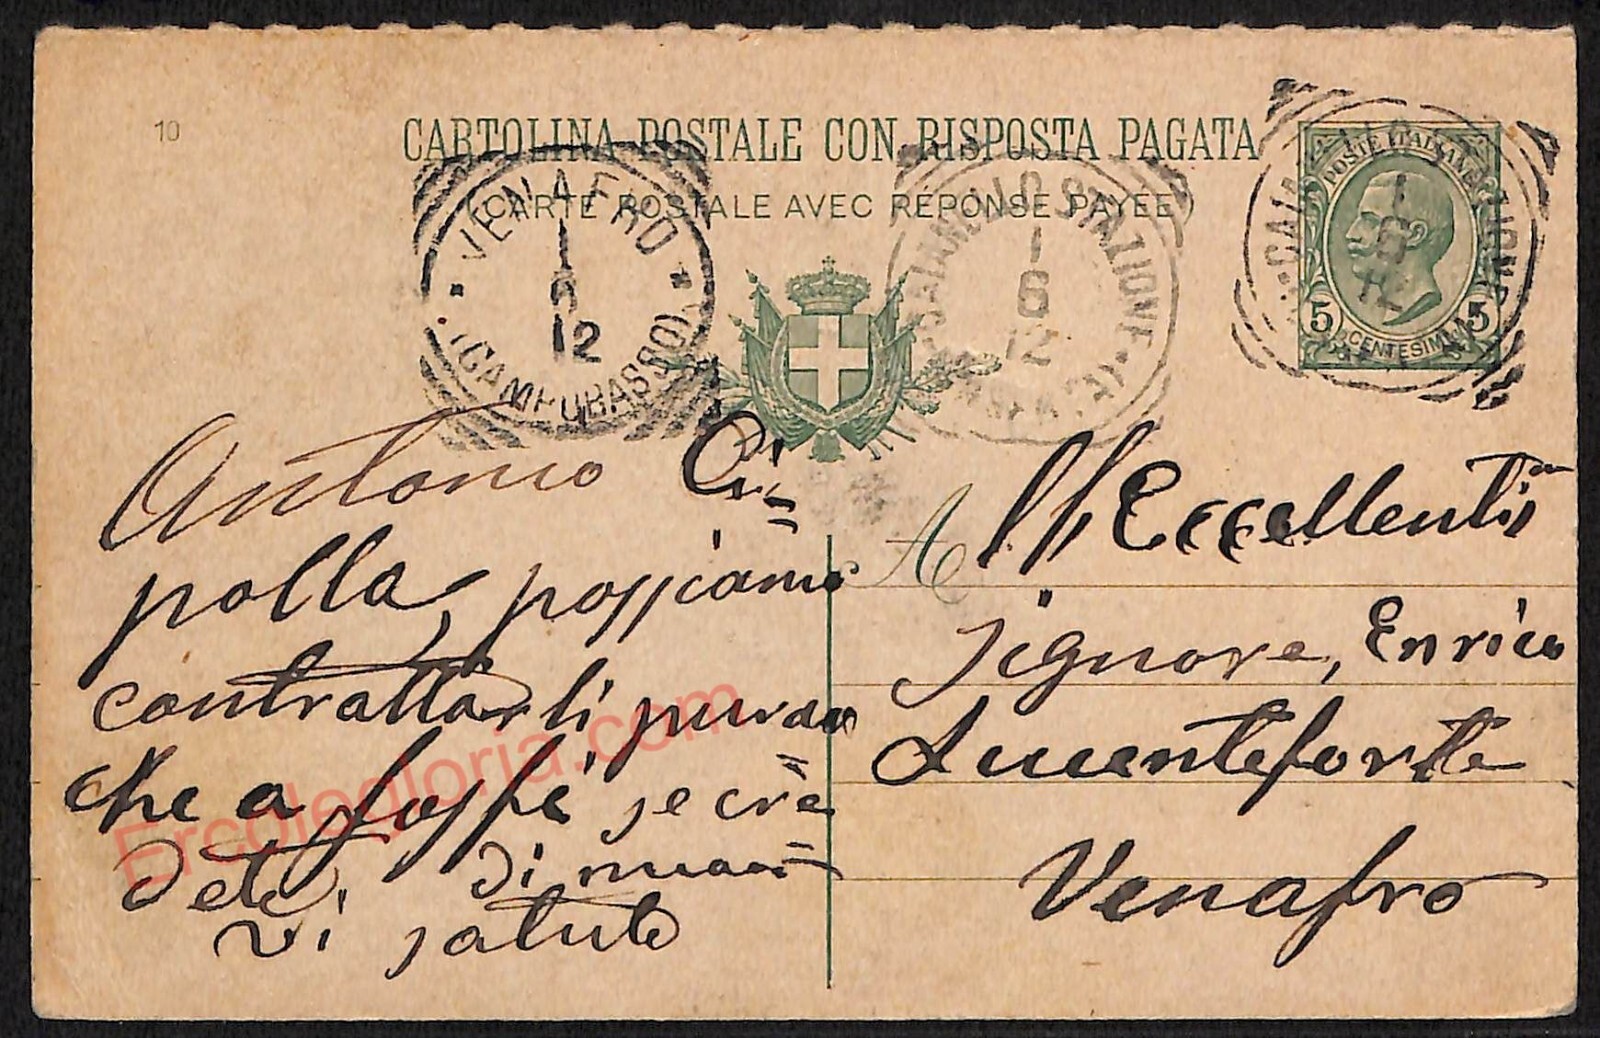 10
CARTOLINA POSTALE CON RISPOSTA PAGATA
(CARTE POSTALE AVEC RÉPONSE PAYÉE)
POSTE ITALIANE
5 CENTESIMI 5
VENAFRO
1
6
12
(CAMPOBASSO)
CAIANELLO STAZIONE
1
6
12
(CASERTA)
CAIANELLO STAZIONE
1
6
12
Antonio Ci=
polla, possiamo
contrattarli purax
che a fosse se cre=
dete di nuovo
vi saluto
A
All'Eccellentis
signore, Enrico
Lucenteforte
Venafro
Ercolegloria.com